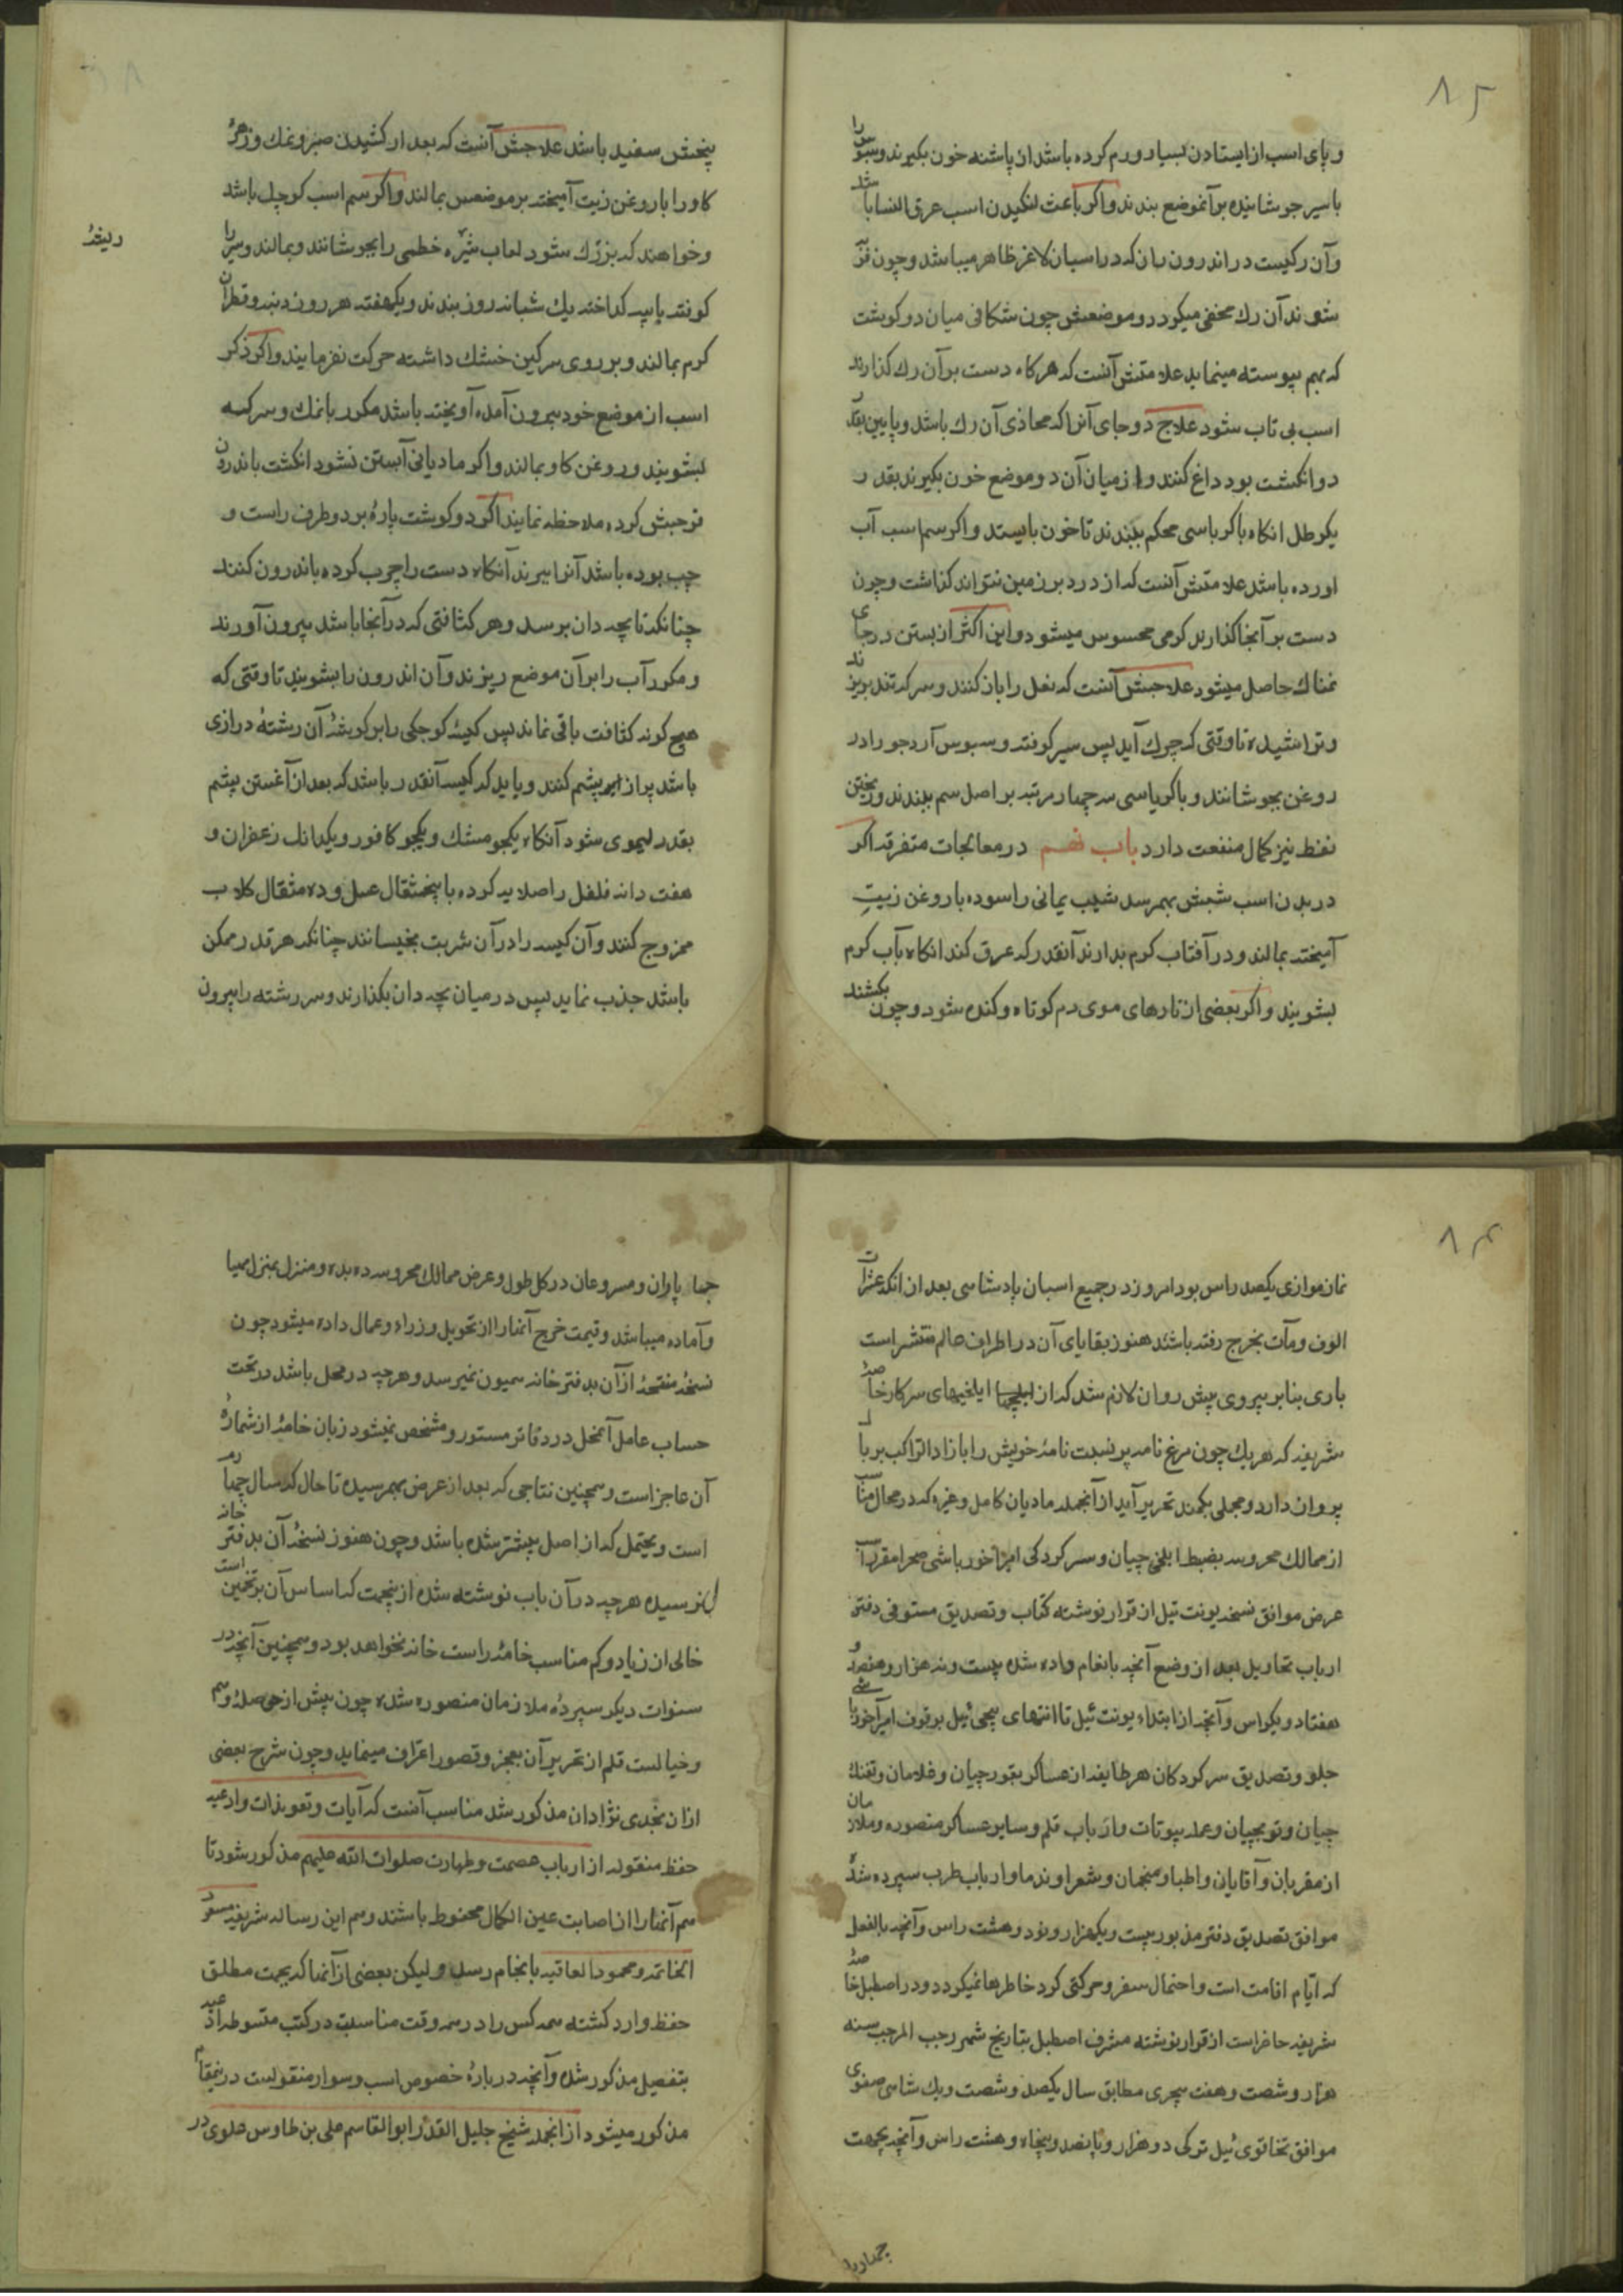 ۸۲
و پای اسب از ایستادن بسیار ورم کرده باشد از پاشنه خون بکیرند و سبوس را
باسیر جوشانیده بر آنموضع بندند و اکر باعث لنکیدن اسب عرق النسا باشد
وآن رکیست در اندرون ران که در اسبان لاغر ظاهر میباشد و چون فربه
شوند آن رک مخفی میکردد و موضعش چون شکافی میان دو کوشت
که بهم پیوسته مینماید علامتش آنست که هرکاه دست بر آن رک کذارند
اسب بی تاب شود علاج دو جای آنرا که محاذی آن رک باشد و پایین بقدر
دو انکشت بود داغ کنند و از میان آن دو موضع خون بکیرند بقدر
یکرطل انکاه با کرباسی محکم ببندند تا خون بایستد و اکر سم اسب آب
اورده باشد علامتش آنست که از درد بر زمین نتواند کذاشت و چون
دست بر آنجا کذارند کرمی محسوس میشود و این اکثر از بستن در جای
نمناک حاصل میشود علاجش آنست که نعل را باز کنند و سرکه تند بریزند
و تراشیده تا وقتی که چرک آید پس سیر کوفته و سبوس آرد جو را در
روغن بجوشانند و با کرباسی سه چهار مرتبه بر اصل سم ببندند و ریختن
نفط نیز کمال منفعت دارد باب نهم در معالجات متفرقه اکر
در بدن اسب شپش بهمرسد شب یمانی را سوده با روغن زیت
آمیخته بمالند و در آفتاب کرم بدارند آنقدر که عرق کند انکاه بآب کرم
بشویند و اکر بعضی از تارهای موی دم کوتاه و کنده شود و چون بکشند
پیخش سفید باشد علاجش آنست که بعد از کشیدن صبر و نمک و زهرهٔ
کاو را با روغن زیت آمیخته بر موضعش بمالند و اکر سم اسب کوچک باشد
و خواهند که بزرک شود لعاب خطمی را بجوشانند و بمالند و سیر را
ریشهٔ
کوفته با پیه کداخته یک شبانه روز بندند و یکهفته هر روز دنبه و قطران
کرم بمالند و بر روی سرکین خشک داشته حرکت نفرمایند و اکر ذکر
اسب از موضع خود بیرون آمده آویخته باشد مکرر با نمک و سرکه
بشویند و روغن کاو بمالند و اکر مادیانی آبستن نشود انکشت باندرون
فرجش کرده ملاحظه نمایند اکر دو کوشت پاره بر دو طرف راست و
چپ بوده باشد آنرا ببرند آنکاه دست را چرب کرده باندرون کنند
چنانکه تا بچه دان برسد و هر کثافتی که در آنجا باشد بیرون آورند
و مکرر آب را بر آن موضع ریزند و آن اندرون را بشویند تا وقتی که
هیچ کونه کثافت باقی نماند پس کیسهٔ کوچکی را بر کوشهٔ آن رشتهٔ درازی
باشد پر از پشم کنند و باید که کیسه آنقدر باشد که بعد از آغستن پشم
بقدر لیموی شود آنکاه یکجو مشک و یکجو کافور و یکدانک زعفران و
هفت دانه فلفل را صلایه کرده با پنجمثقال عسل و ده مثقال کلاب
ممزوج کنند و آن کیسه را در آن شربت بخیسانند چنانکه هر قدر ممکن
باشد جذب نماید پس در میان بچه دان بکذارند و سر رشته را بیرون
۸۳
نماز موازی یکصد راس بود امروز در جمیع اسبان پادشاهی بعد از انکه عشرات
الوف و مآت بخرج رفته باشند هنوز بقایای آن در اطراف عالم منتشر است
باری بنا بر پیروی پیش روان لازم شد که از ایلخیهای سرکار خاصهٔ
شریفه که هر یک چون مرغ نامه بر نسبت نامهٔ خویش را با زاد الراکب بر بال
پرواز دارد و مجلی بکمند تحریر آید از آنجمله مادیان کامل و غیره که در محال مناسب
از ممالک محروسه بضبط ایلخی چیان و سرکردکی امیراخورباشی صحرا مقرر است
عرض موافق نسخه یونت ئیل از قرار نوشته کتاب و تصدیق مستوفی دفتر
ارباب تحاویل بعد از وضع آنچه بانعام داده شده بیست و نه هزار و هفتصد و
هفتاد و یکراس و آنچه از ابتداء یونت ئیل تا انتهای پیچی ئیل بوقوف امیرآخورباشی
جلو و تصدیق سرکردکان هر طایفه از عساکر قورچیان و غلامان و تفنک
چیان و توبچیان و عمله بیوتات و ارباب قلم و سایر عساکر منصوره و ملازمان
از مقربان و آقایان و اطبا و منجمان و شعرا و ندما و ارباب طرب سپرده شده
موافق تصدیق دفتر مذبور بیست و یکهزار و نود و هشت راس و آنچه بالفعل
که ایّام اقامت است و احتمال سفر و حرکتی کرد خاطرها نمیکردد و در اصطبل خاصهٔ
شریفه حاضر است از قرار نوشته مشرف اصطبل بتاریخ شهر رجب المرجب سنه
هزار و شصت و هفت هجری مطابق سال یکصد و شصت و یک شاهی صفوی
موافق تخاقوی ئیل ترکی دو هزار و پانصد و پنجاه و هشت راس و آنچه بجهت
چهارپا
چهار پاروان و مسروعان در کل طول و عرض ممالک محروسه ده بده و منزل بمنزل مهیا
و آماده میباشد و قیمت خرج آنها را از تحویل وزراء و عمال داده میشود چون
نسخهٔ منقحهٔ از آن بدفتر خانه همیون نمیرسد و هر چه در محل باشد در تحت
حساب عامل آنمحل در دفاتر مستور و مشخص نمیشود زبان خامهٔ از شمارهٔ
آن عاجز است و همچنین نتاجی که بعد از عرض بهمرسیده تا حال که سال چهارم
است و یحتمل که از اصل بیشتر شده باشد و چون هنوز نسخهٔ آن بدفتر خانه
نرسیده هر چه در آن باب نوشته شده ازینجهت که اساس آن بر تخمین است
خالی از زیاد و کم مناسب خامهٔ راست خانه نخواهد بود و همچنین آنچه در
سنوات دیکر سپردهٔ ملازمان منصوره شده چون بیش از حوصلهٔ وهم
و خیالست قلم از تحریر آن بعجز و قصور اعتراف مینماید و چون شرح بعضی
ازان نجدی نژادان مذکور شد مناسب آنست که آیات و تعویذات و ادعیه
حفظ منقوله از ارباب عصمت و طهارت صلوات الله علیهم مذکور شود تا
هم آنها را از اصابت عین الکمال محفوظ باشند و هم این رساله شریفه مسعود
الخاتمه و محمود العاقبه بانجام رسد و لیکن بعضی از آنها که بجهت مطلق
حفظ وارد کشته همه کس را در همه وقت مناسبت در کتب مبسوطه ادعیه
بتفصیل مذکور شده و آنچه در بارهٔ خصوص اسب و سوار منقولست در ینمقام
مذکور میشود از انجمله شیخ جلیل القدر ابوالقاسم علی بن طاوس علوی در